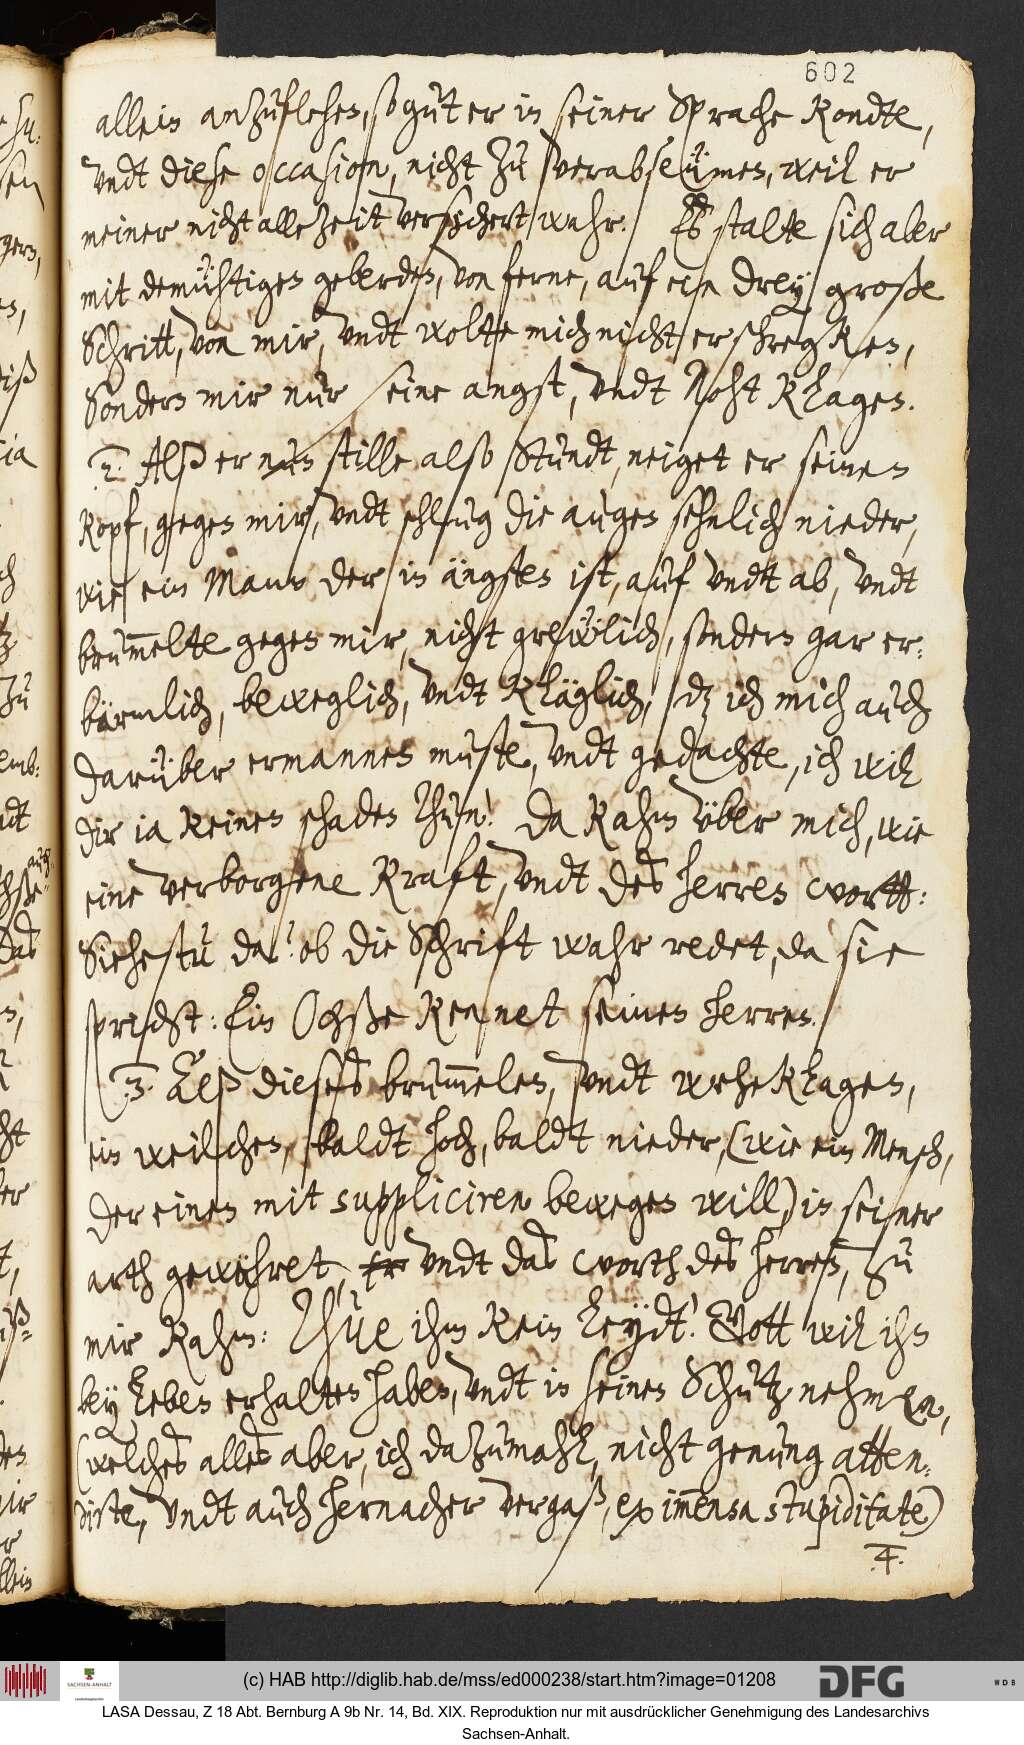 602
allein anzuflehen, so gut er in seiner Sprache Kondte,
vndt diese occasion, nicht zu verabseümen, weil er
meiner nicht allezeit versichert wehr. Es stalte sich aber
mit demühtigen geberden, von ferne, auf ein drey große
Schritt, von mir, vndt wolte mich nicht erschregken,
Sondern mir nur seine angst, vndt Noht Klagen.
2. Alß er nun stille also stundt, neiget er seinen
Kopf, gegen mir, vndt schlug die augen sehnlich nieder,
wie ein Mann der in ängsten ist, auf vndt ab, vndt
brum̄elte gegen mir, nicht grewlich, sondern gar er:
bärmlich, beweglich, vndt Kläglich, dz ich mich auch
darüber ermannen muste, vndt gedachte, ich wil
dir ia Keinen schaden thun! Da Kahm über mich, wie
eine verborgene Kraft, vndt des Herren wortt:
Siehestu da? ob die Schrift wahr redet, da sie
spricht: Ein Ochße Kennet seinen Herren.
3. Alß dieses brum̄elen, vndt weheKlagen,
ein weilchen, baldt hoch, baldt nieder, (wie ein Mensch,
der einen mit suppliciren bewegen will) in seiner
arth gewehret, Er vndt das worth des Herren, zu
mir Kahm: Thue ihm Kein Leydt! Gott wil ihn
bey Leben erhalten haben, vndt in seinen Schutz nehmen,
(welches alles aber, ich dazumahl, nicht genung atten:
dirte, vndt auch hernacher vergaß, ex im̄ensa stupiditate)
4.
(c) HAB http://diglib.hab.de/mss/ed000238/start.htm?image=01208
SACHSEN-ANHALT
DFG
WDB
LASA Dessau, Z 18 Abt. Bernburg A 9b Nr. 14, Bd. XIX. Reproduktion nur mit ausdrücklicher Genehmigung des Landesarchivs
Sachsen-Anhalt.